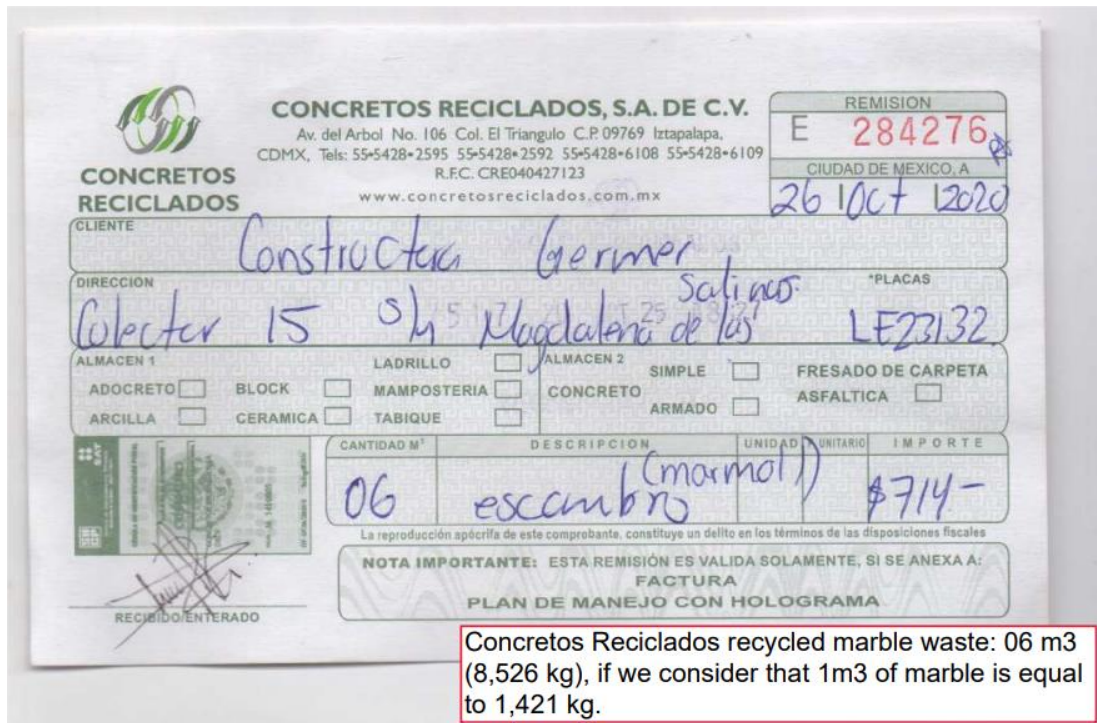 CONCRETOS RECICLADOS
CONCRETOS RECICLADOS, S.A. DE C.V.
Av. del Arbol No. 106 Col. El Triangulo C.P. 09769 Iztapalapa,
CDMX, Tels: 55•5428•2595 55•5428•2592 55•5428•6108 55•5428•6109
R.F.C. CRE040427123
www.concretosreciclados.com.mx
REMISION
E 284276
CIUDAD DE MEXICO, A
26 Oct 2020
CLIENTE
Constructora Germer
DIRECCIÓN
*PLACAS
Colector 15 S/N Magdalena de las Salinas.
LE23132
ALMACEN 1
LADRILLO
ADOCRETO
BLOCK
MAMPOSTERIA
ARCILLA
CERAMICA
TABIQUE
ALMACEN 2
SIMPLE
CONCRETO
ARMADO
FRESADO DE CARPETA
ASFALTICA
CANTIDAD M³
DESCRIPCION
UNIDAD
P. UNITARIO
IMPORTE
06 escombro (marmol) $714-
SAT
La reproducción apócrifa de este comprobante, constituye un delito en los términos de las disposiciones fiscales
NOTA IMPORTANTE: ESTA REMISIÓN ES VALIDA SOLAMENTE, SI SE ANEXA A:
FACTURA
PLAN DE MANEJO CON HOLOGRAMA
RECIBIDO/ENTERADO
Concretos Reciclados recycled marble waste: 06 m3
(8,526 kg), if we consider that 1m3 of marble is equal
to 1,421 kg.